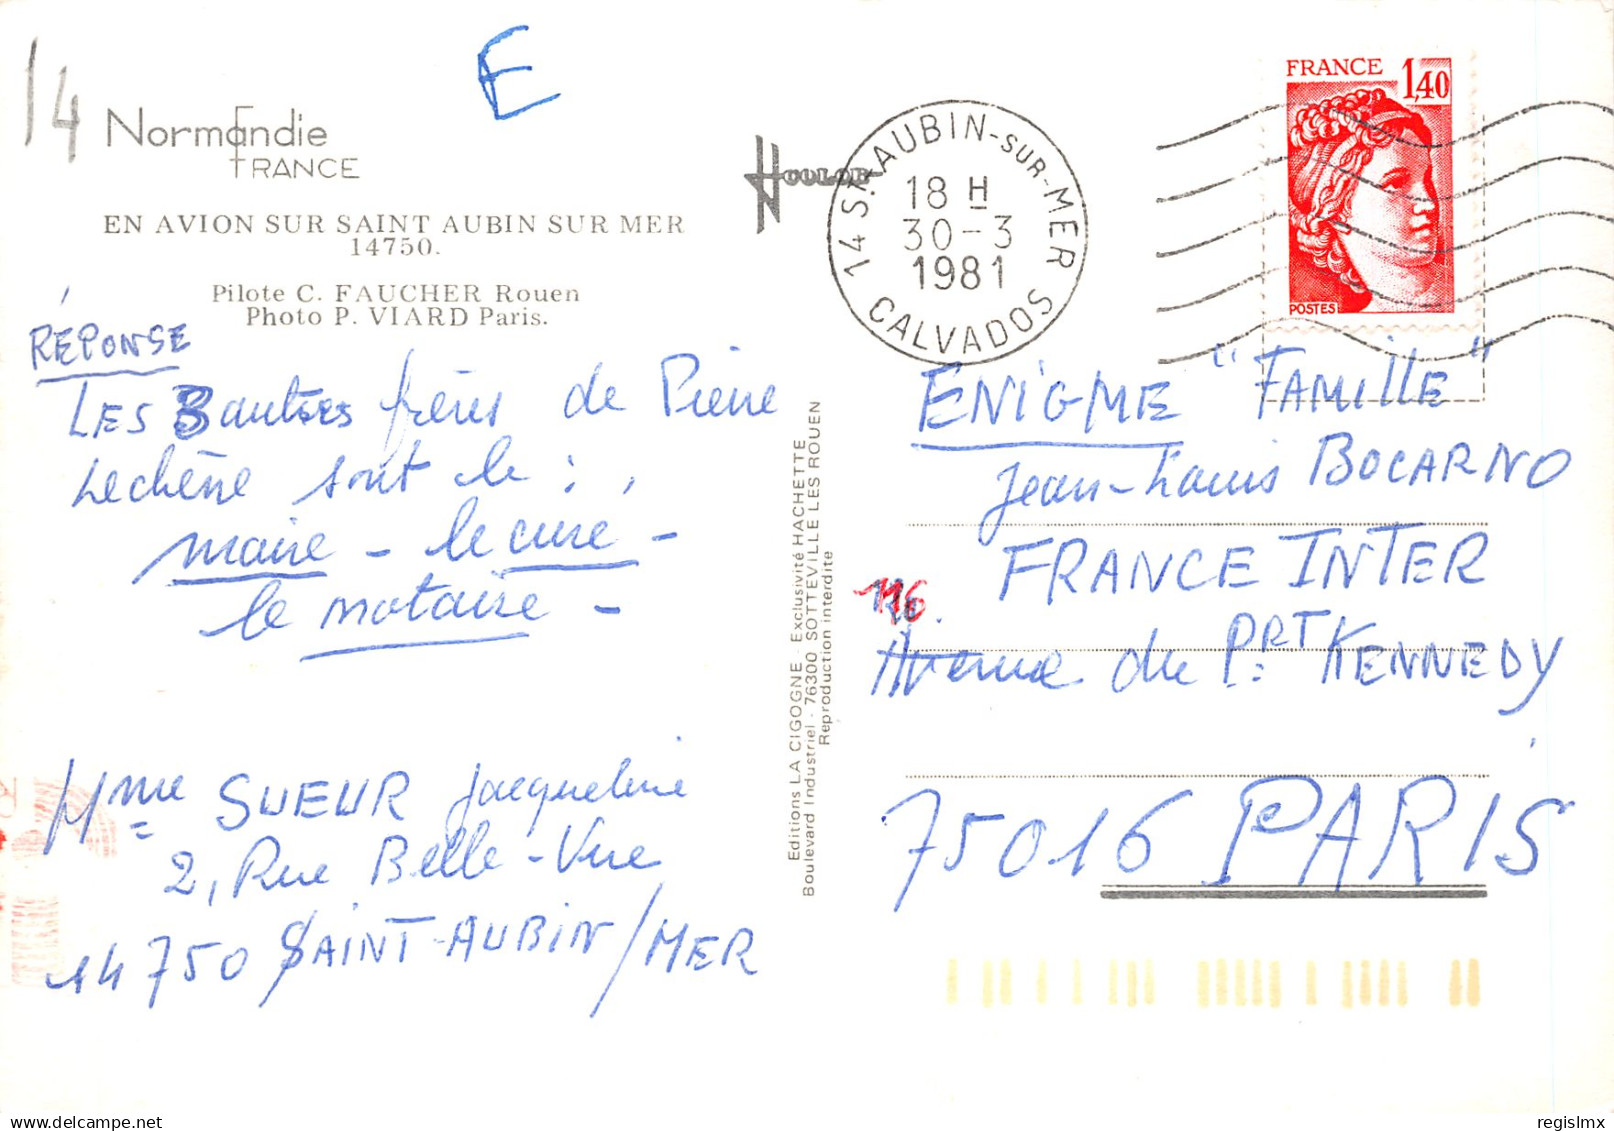 14
E
Normandie
FRANCE
EN AVION SUR SAINT AUBIN SUR MER
14750.
Pilote C. FAUCHER Rouen
Photo P. VIARD Paris.
RÉPONSE
LES 3 autres frères de Pierre
Lechêne sont le :
maire - le curé -
le notaire -
Mme SUEUR Jacqueline
2, Rue Belle-Vue
14750 SAINT-AUBIN/MER
Editions LA CIGOGNE - Exclusivité HACHETTE
Boulevard Industriel - 76300 SOTTEVILLE LES ROUEN
Reproduction interdite
COLOR
14 ST AUBIN-SUR-MER
18 H
30-3
1981
CALVADOS
FRANCE 1,40
POSTES
ÉNIGME "FAMILLE"
Jean-Louis BOCARNO
FRANCE INTER
116
Avenue du PRT KENNEDY
75016 PARIS
regislmx